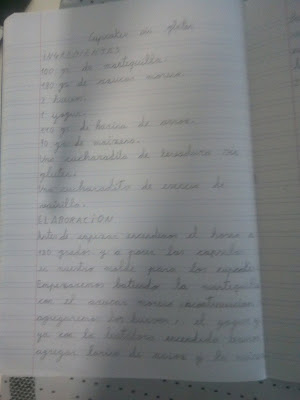 Cupcakes sin gluten
INGREDIENTES
100 gr. de mantequilla.
180 gr. de azucar moreno.
2 huevos.
1 yogur.
de harina de arroz.
de maizena.
Una cucharadita de levadura sin
gluten.
Una cucharadita de esencia de
vainilla.
ELABORACIÓN
Antes de empezar encendemos el horno a
180 grados y a poner los capsulas
en nuestro molde para los cupcakes.
Empezaremos batiendo la mantequilla
con el azucar moreno, acontinuacion
agregaremos los huevos, el yogur y
ya con la batidora encendida
agregar harina de arroz y la maizena